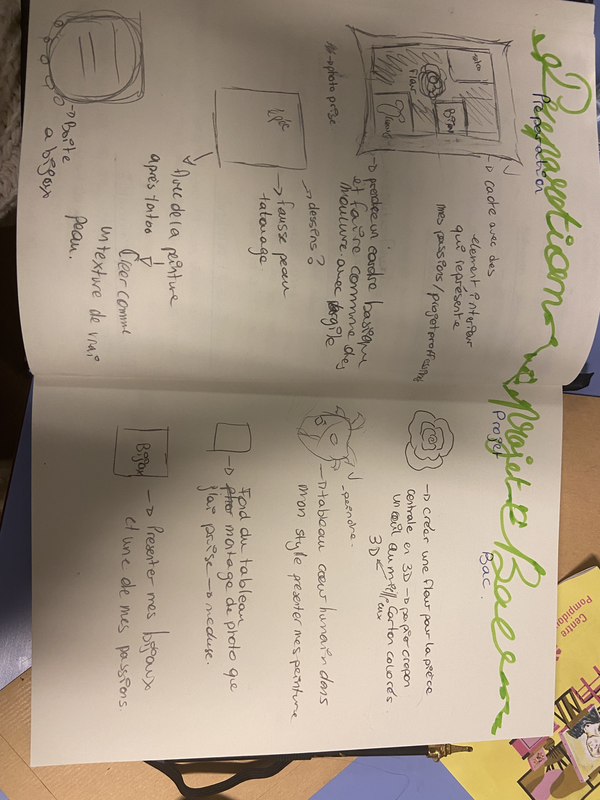 Préparation Projet Bac
Préparation
Projet
Bac.
Fleur
Bijoux
→ photo prise
→ cadre avec des
element interieur
qui représente
mes passions/projet proffessionnel
→ prendre un cardre basique
et faire comme des
moulure avec argile
→ dessins?
→ fausse peau
tatouage
Avec de la peinture
après tatoo
Créer comme
un texture de vrai
peau.
→ Boite
a bijoux
→ créer une fleur pour la pièce
centrale en 3D → papier crepon
un oeil au milieu
carton colorés
3D
→ peindre.
→ tableau coeur humain dans
mon style presenter mes peinture
→ Fond du tableau
montage de photo que
j'ai prise → meduse.
Bijoux
→ Presenter mes bijoux
et une de mes passions.
Centre
Pompidou